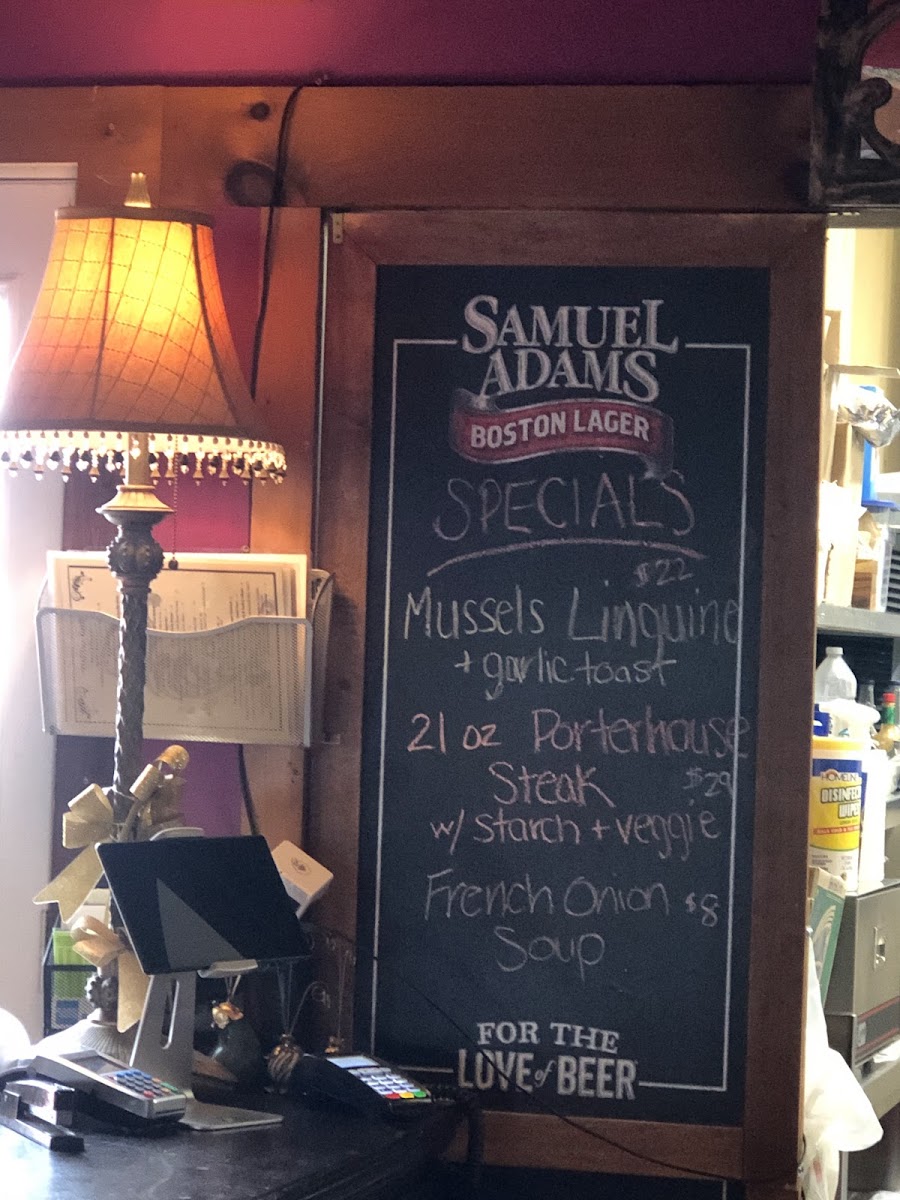 SAMUEL
ADAMS
BOSTON LAGER
SPECIALS
$22
Mussels Linguine
+ garlic toast
21 oz Porterhouse
Steak $29
w/ starch + veggie
French Onion $8
Soup
FOR THE
LOVE of BEER
HOMELINE